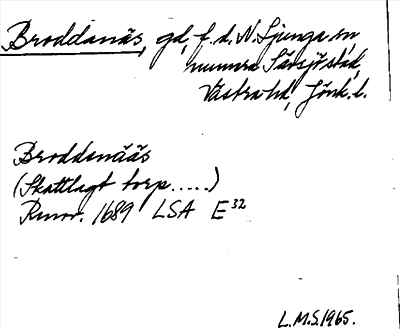 Broddanäs, gd, f.d. N. Ljunga sn,
numera Sävsjö stad,
Västra hd, Jönk. l.
Broddanääs
(Skattlagt torp.....)
Renov. 1689 LSA E 32
L.M.S. 1965.